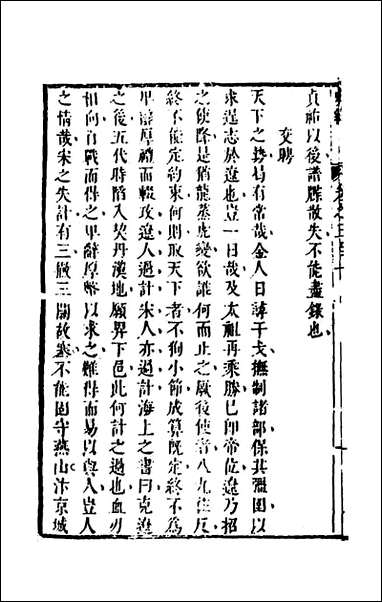 貞祐以後譜牒散失不能盡錄也
交聘
天下之勢曷有常哉金人日諱干戈撫制諸部保其疆圉以
求逞志於遼也豈一日哉及太祖再乘勝已即帝位遼乃招
之使降是猶龍蒸虎變欲誰何而止之厥後使者八九往反
終不能定約束何則取天下者不狥小節成算既定終不為
卑辭厚禮而輟攻遼人過計宋人亦過計海上之書曰克遼
之後五代時陷入契丹漢地願畀下邑此何計之過也血刃
相向百戰而得之卑辭厚幣以求之難得而易以與人豈人
之情哉宋之失計有三撤三關故塞不能固守燕山汴京城